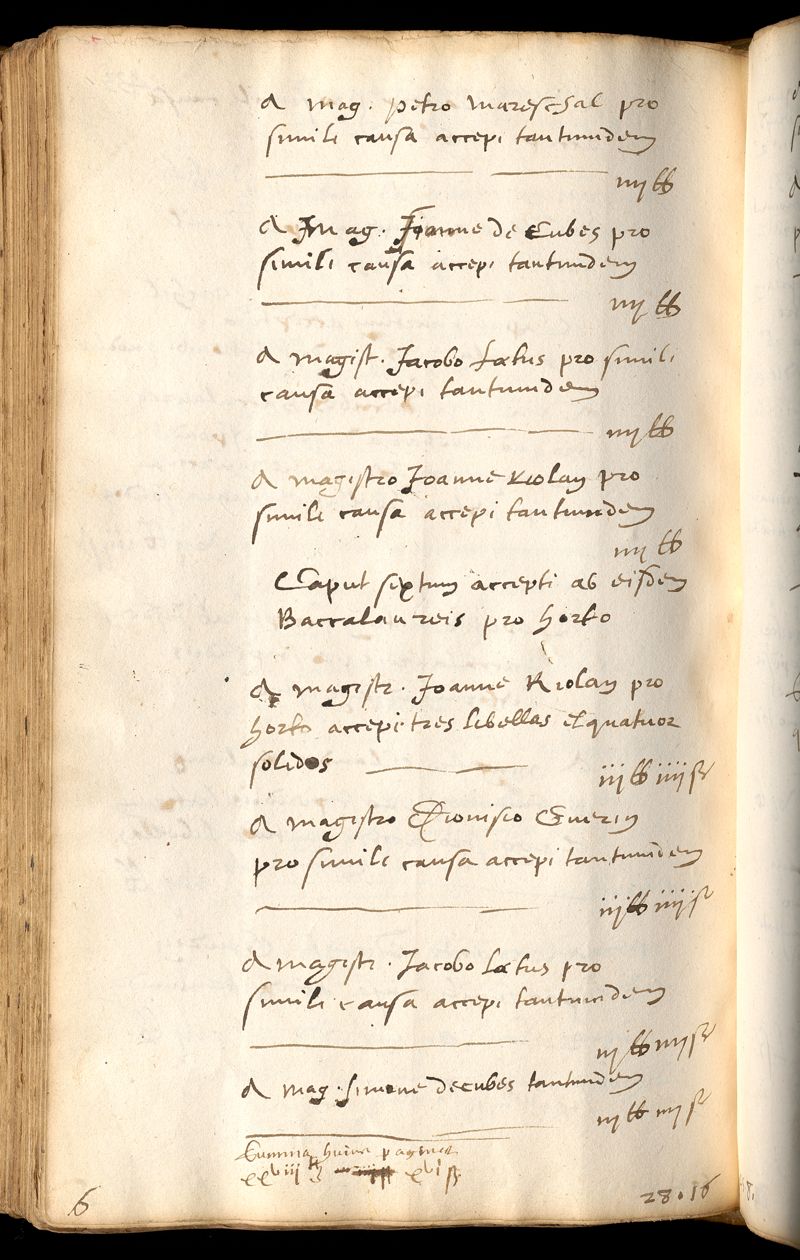 A mag. petro Mareschal pro
simili causa accepi tantumdem
iiij lb
A Mag. Joanne de Cubes pro
simili causa accepi tantumdem
iiij lb
A magist. Jacobo Lætus pro simili
causa accepi tantumdem
iiij lb
A magistro Joanne Riolan pro
simili causa accepi tantumdem
iiij lb
Caput sextum accepti ab eisdem
Baccalaureis pro horto
A magistr. Joanne Riolan pro
horto accepi tres libellas et quatuor
solidos
iij lb iiij s
A magistro Dionisio Guerin
pro simili causa accepi tantumdem
iij lb iiij s
A magistr. Jacobo Lætus pro
simili causa accepi tantumdem
iij lb iiij s
A mag. simone decubes tantumdem
iij lb iiij s
Summa huius paginæ
xxviii lb xvi s
6
28.16